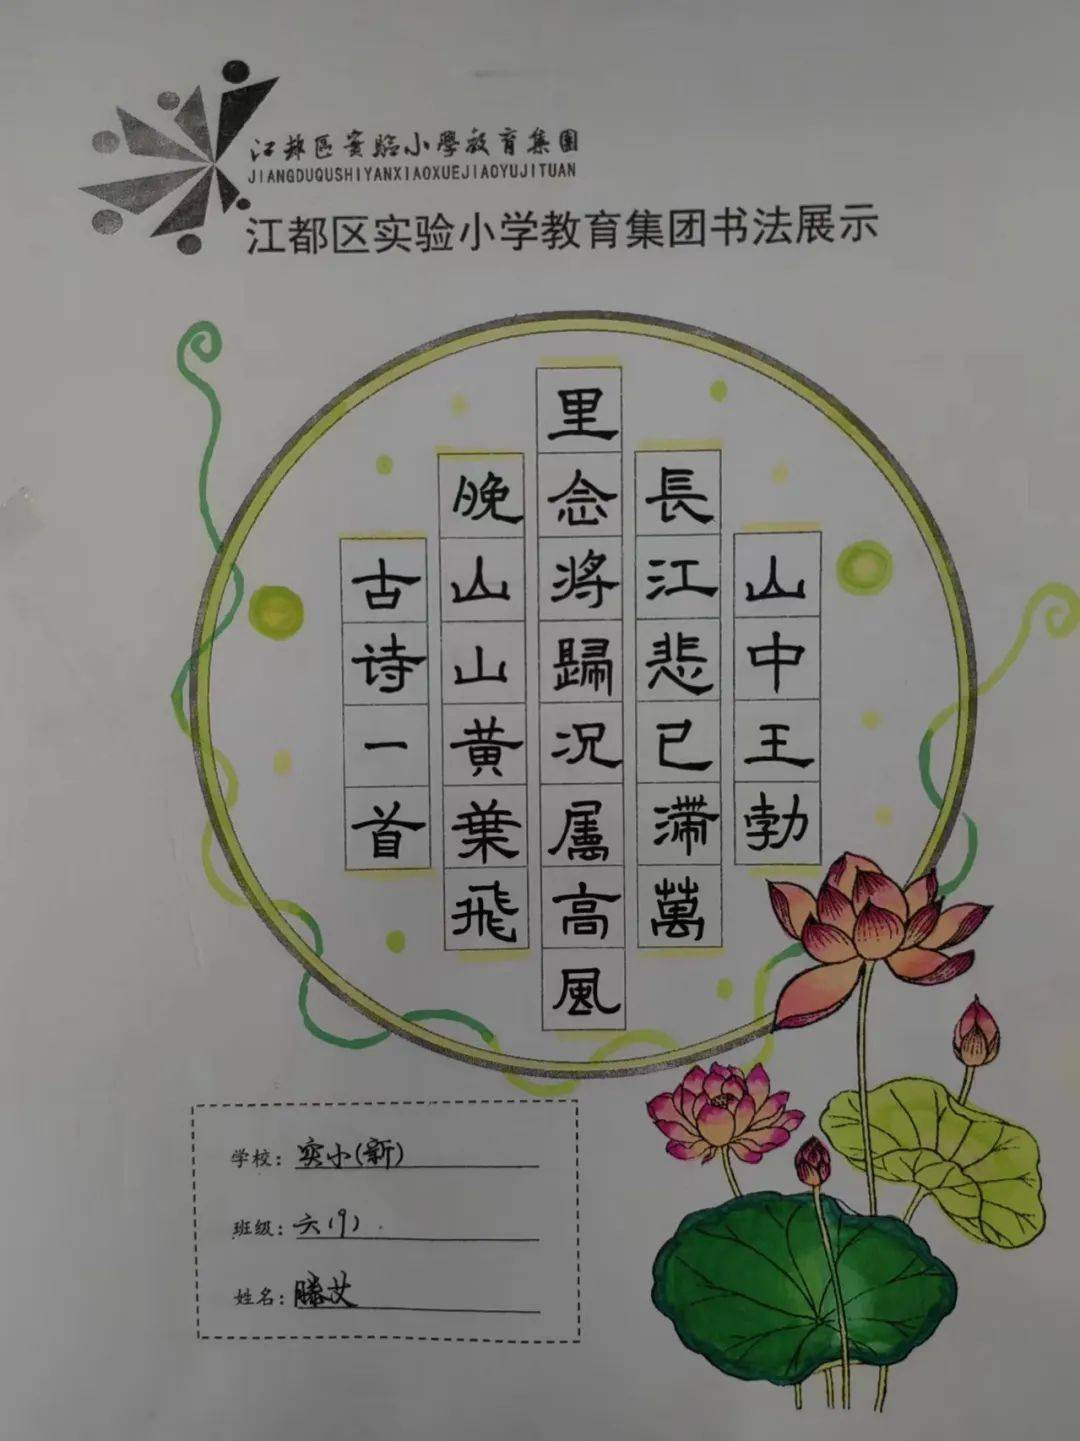 江都区实验小学教育集团
JIANGDUQUSHIYANXIAOXUEJIAOYUJITUAN
江都区实验小学教育集团书法展示
山中王勃
長江悲已滞萬
里念将歸況属高風
晚山山黄葉飛
古诗一首
学校：实小(新)
班级：六(9)
姓名：滕艾